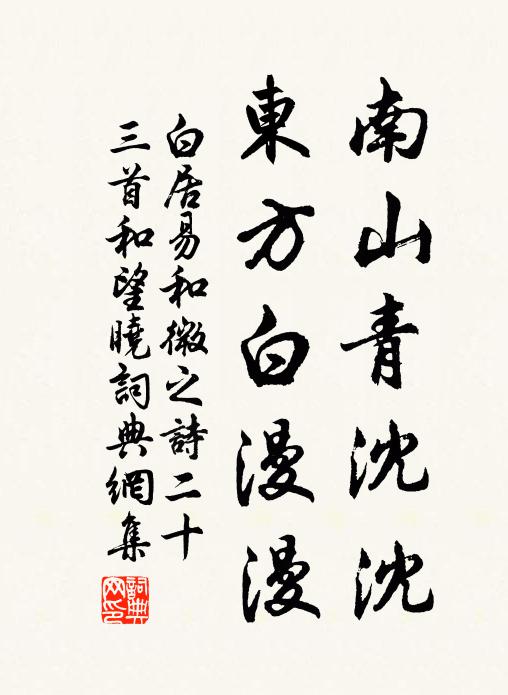 南山青沈沈
東方白漫漫
白居易和微之詩二十
三首和望曉詞典網集
詞典网印